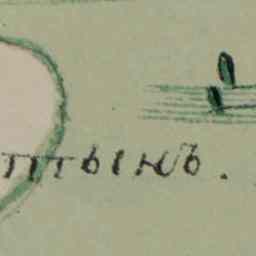 птынъ.